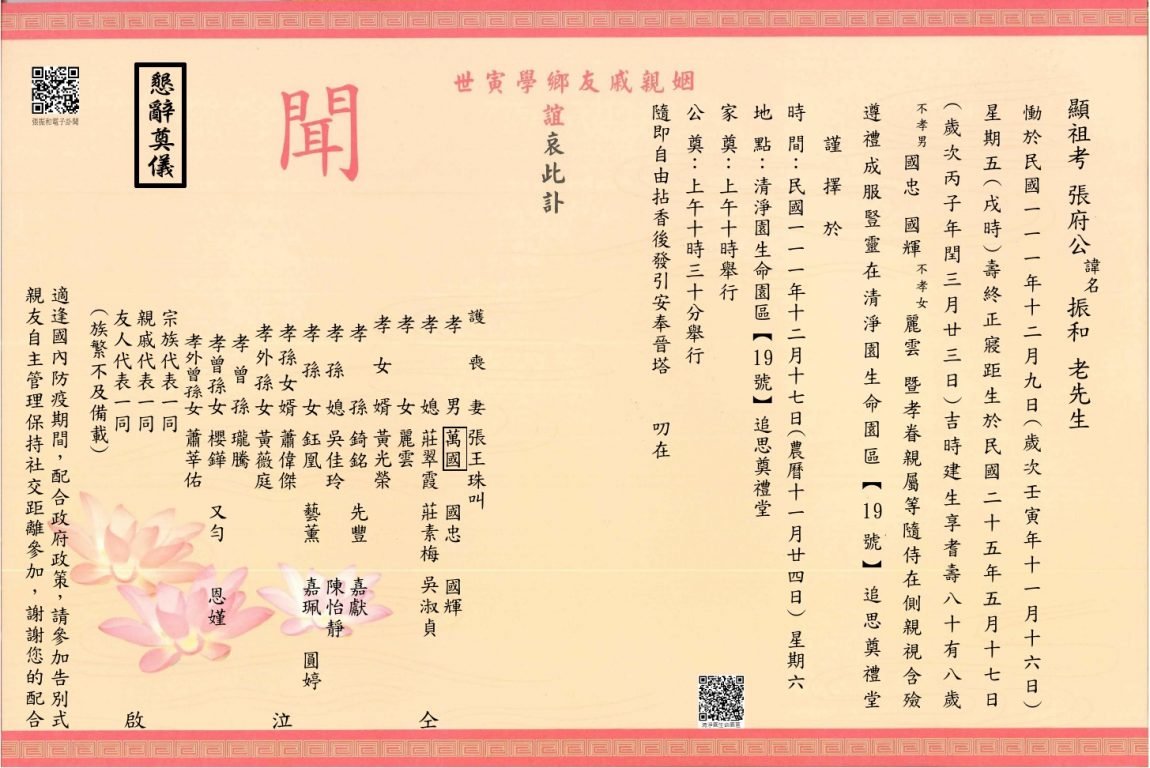 顯祖考 張府公 諱名 振和 老先生
慟於民國一一一年十二月九日(歲次壬寅年十一月十六日)
星期五(戌時)壽終正寢距生於民國二十五年五月十七日
(歲次丙子年閏三月廿三日)吉時建生享耆壽八十有八歲
不孝男 國忠 國輝 不孝女 麗雲 暨孝眷親屬等隨侍在側親視含殮
遵禮成服豎靈在清淨園生命園區【19號】追思奠禮堂
謹擇於
時 間:民國一一一年十二月十七日(農曆十一月廿四日)星期六
地 點:清淨園生命園區【19號】追思奠禮堂
家 奠:上午十時舉行
公 奠:上午十時三十分舉行
隨即自由拈香後發引安奉晉塔 叨在
姻親戚友鄉學寅世
誼哀此訃
聞
懇辭奠儀
張振和電子訃聞
護喪妻 張王珠叫
孝男 萬國 國忠 國輝
孝媳 莊翠霞 莊素梅 吳淑貞
孝女 麗雲
孝女婿 黃光榮
孝孫 錡銘 先豐 嘉獻
孝孫媳 吳佳玲 陳怡靜
孝孫女 鈺凰 藝薰 嘉珮 圓婷
孝孫女婿 蕭偉傑
孝外孫女 黃薇庭
孝曾孫 瓏騰
孝曾孫女 櫻鏵 又勻 恩嫤
孝外曾孫女 蕭莘佑
宗族代表一同
親戚代表一同
友人代表一同
(族繁不及備載)
仝 泣 啟
適逢國內防疫期間,配合政府政策,請參加告別式
親友自主管理保持社交距離參加,謝謝您的配合